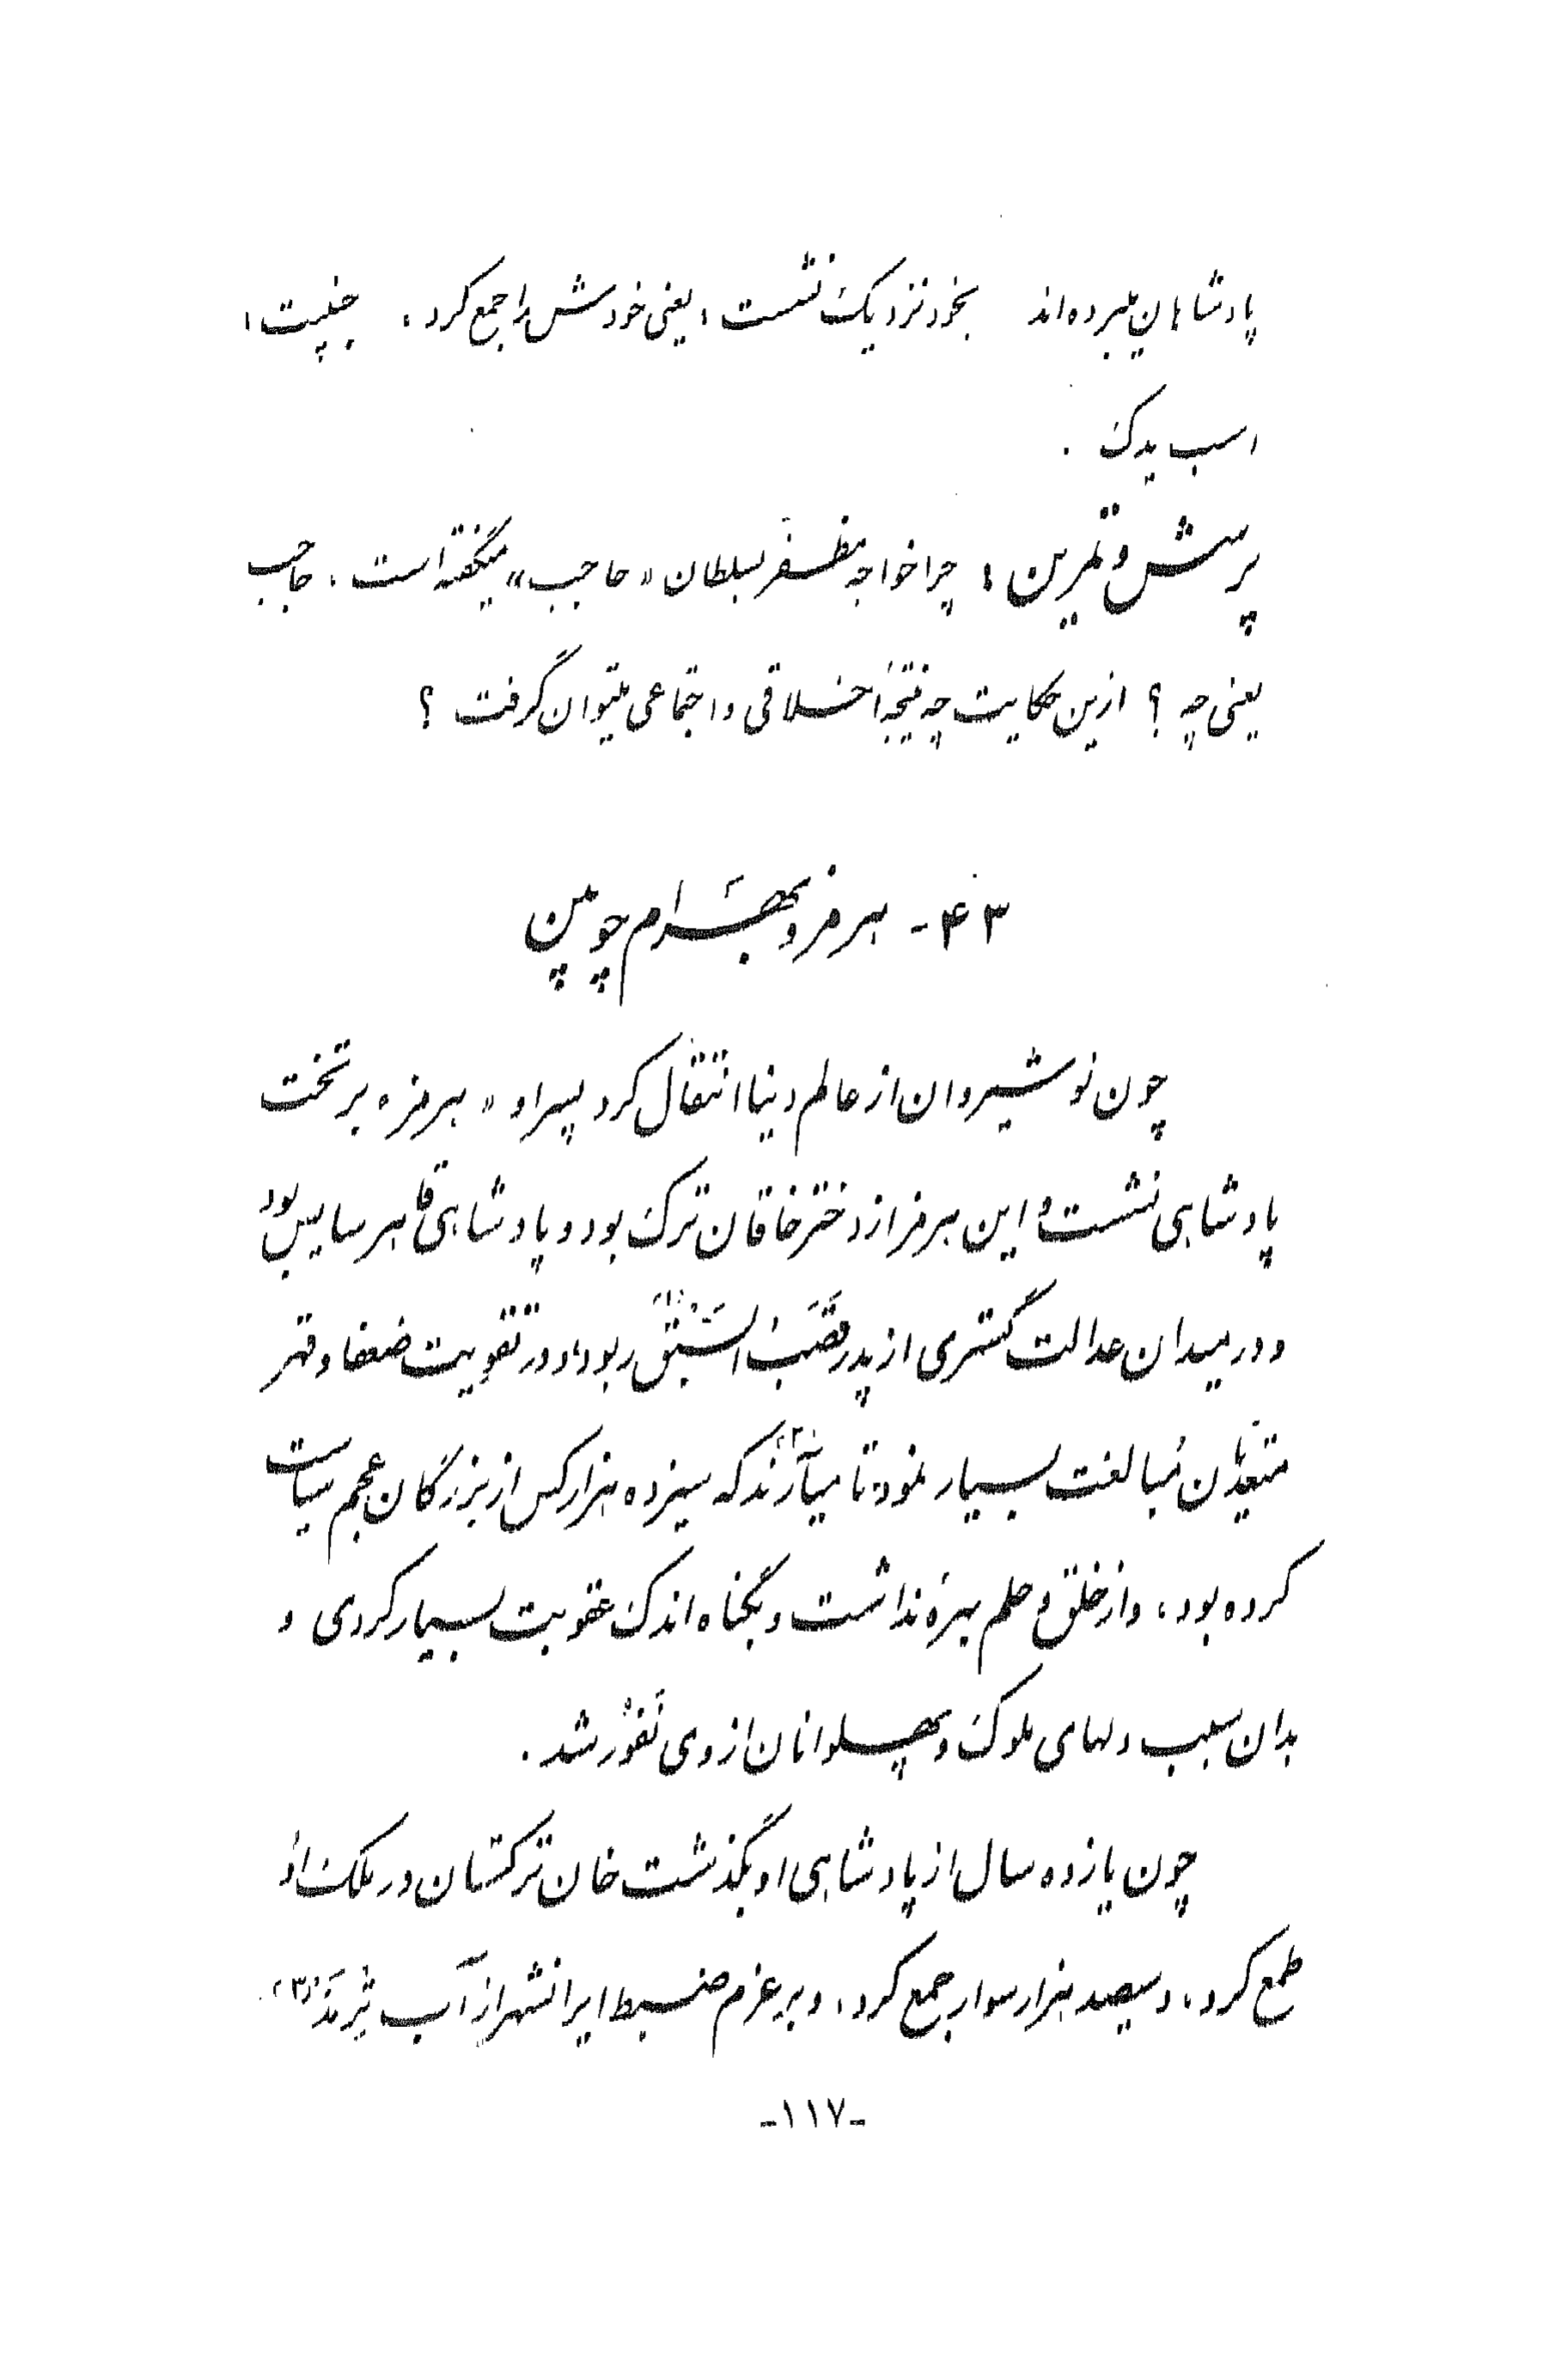 پادشاهان میبرده‌اند    بخود نزدیک نشست : یعنی خودش را جمع کرد .    جنیبت :
اسب یدک .
پرسش و تمرین : چرا خواجه مظفّر بسلطان «حاجب» میگفته است . حاجب
یعنی چه ؟ ازین حکایت چه نتیجهٔ اخلاقی و اجتماعی میتوان گرفت ؟
۴۳ - هرمز و بهَرام چوبین
چون نوشیروان از عالم دنیا انتقال کرد پسر او « هرمز » بر تخت
پادشاهی نشست و این هرمز از دختر خاقان ترک بود و پادشاهی قاهر سایس بود
و در میدان عدالت گستری از پدر قَصَبُ السَّبْق (۱) ربود ، و در تقویت ضعفا و قهر
متعدّیان مُبالغت بسیار نمود تا میآرند (۲) که سیزده هزار کس از بزرگان عجم سیاست
کرده بود ، و از خلق و حلم بهرهٔ نداشت و بگناه اندک عقوبت بسیار کردی و
بدان سبب دلهای ملوک و پهلوانان از وی نَفُور شد .
چون یازده سال از پادشاهی او بگذشت خان ترکستان در ملک او
طمع کرد ، و سیصد هزار سوار جمع کرد ، و بر عزم ضبط ایرانشهر از آب تِرمَذ (۳)
-۱۱۷-